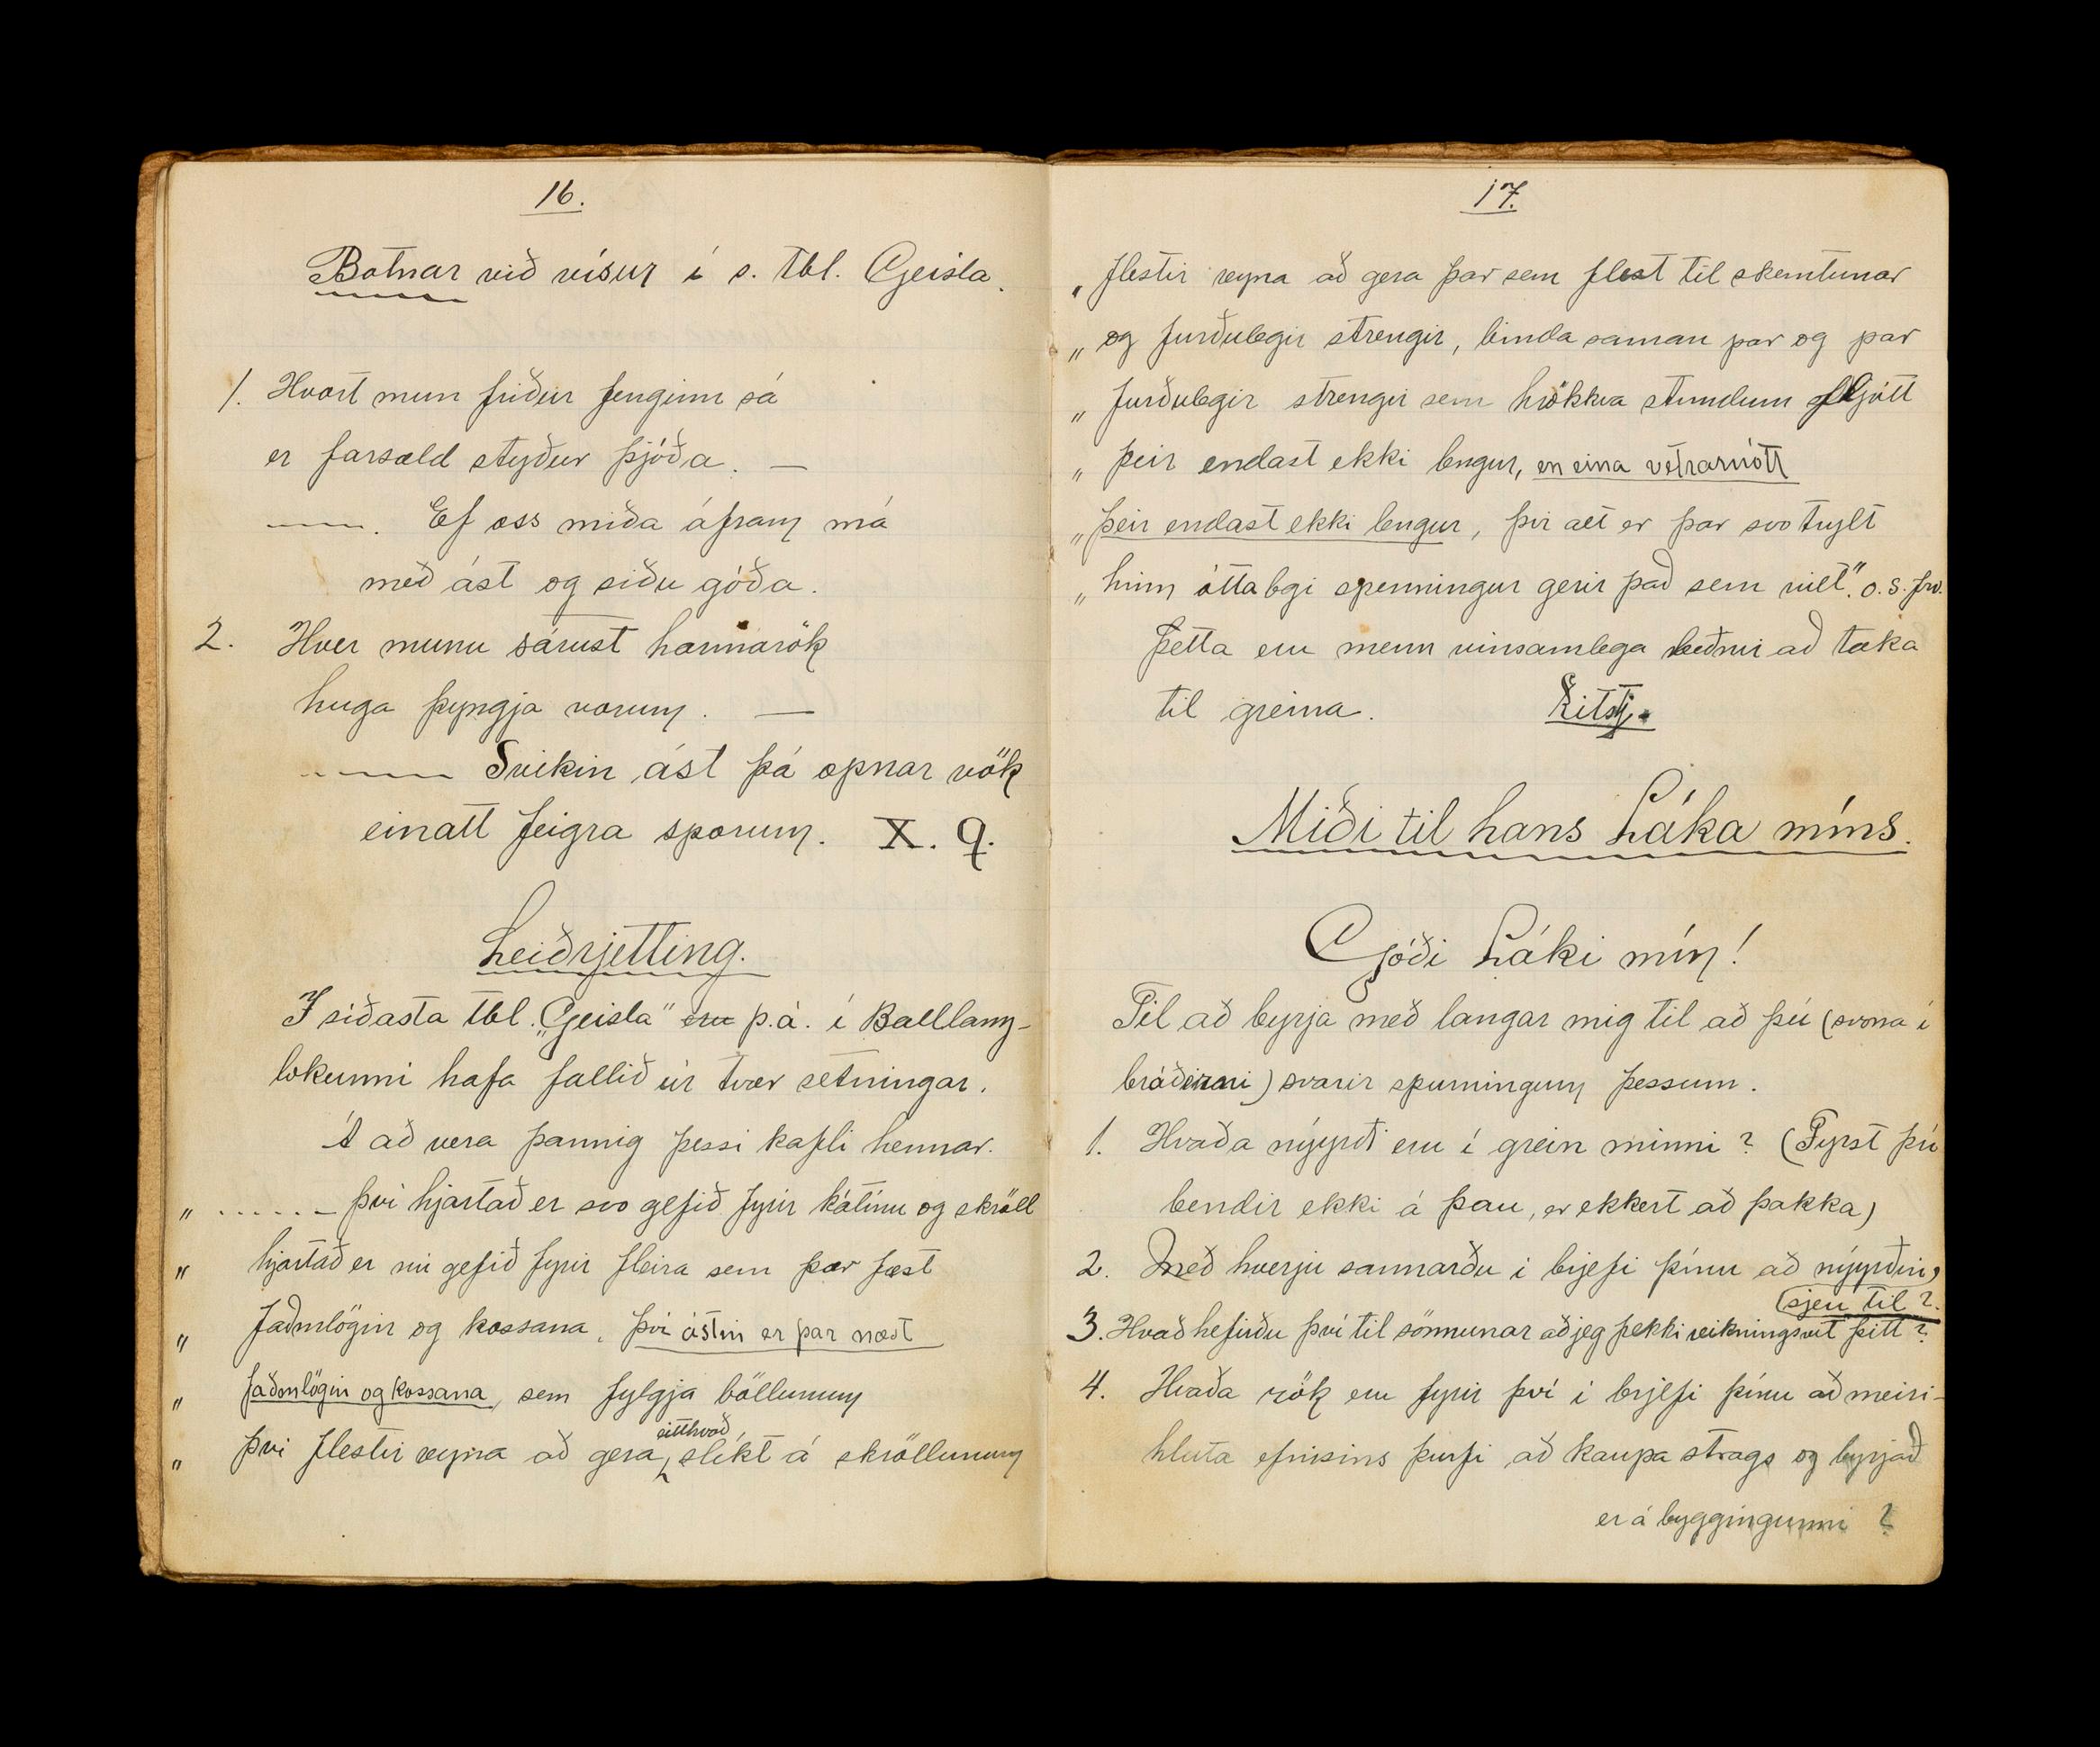 16.
Botnar við vísur í s. tbl. Geisla.
1. Hvort mun friður fenginn sá
er farsæld styður þjóða. —
——. Ef oss miða áfram má
með ást og siðu góða.
2. Hver munu sárust harmarök
huga þyngja vorum. —
—— Svikin ást þá opnar vök
einatt feigra sporum. X. 9.
Leiðrjetting.
Í síðasta tbl. „Geisla" eru þ.á. í Balllang-
lokunni hafa fallið úr tvær setningar.
Á að vera þannig þessi kafli hennar.
„ ......— því hjartað er svo gefið fyrir kátínu og skröll
„ hjartað er nú gefið fyrir fleira sem þar fæst
„ faðmlögin og kossana, því ástin er þar næst
„ faðmlögin og kossana, sem fylgja böllunum
„ því flestir reyna að gera eitthvað slíkt á skröllunum
17.
„ flestir reyna að gera þar sem flest til skemtunar
„ og furðulegir strengir, binda saman par og par
„ furðulegir strengir sem hrökkva stundum fljótt
„ þeir endast ekki lengur, en eina vetrarnótt
„ þeir endast ekki lengur, því alt er þar svo trylt
„ hinn óttalegi spenningur gerir það sem vilt". o. s. frv.
Þetta eru menn vinsamlega beðnir að taka
til greina. Ritstj.
Miði til hans Láka míns.
Góði Láki mín!
Til að byrja með langar mig til að þú (svona í
bráðinni) svarir spurningum þessum.
1. Hvaða nýyrði eru í grein minni? (Fyrst þú
bendir ekki á þau, er ekkert að þakka)
2. Með hverju sannarðu í brjefi þínu að nýyrðin,
sjeu til?
3. Hvað hefirðu því til sönnunar að jeg þekki reikningsvit þitt?
4. Hvaða rök eru fyrir því í brjefi þínu að meiri-
hluta efnisins þurfi að kaupa strags og byrjað
er á byggingunni?